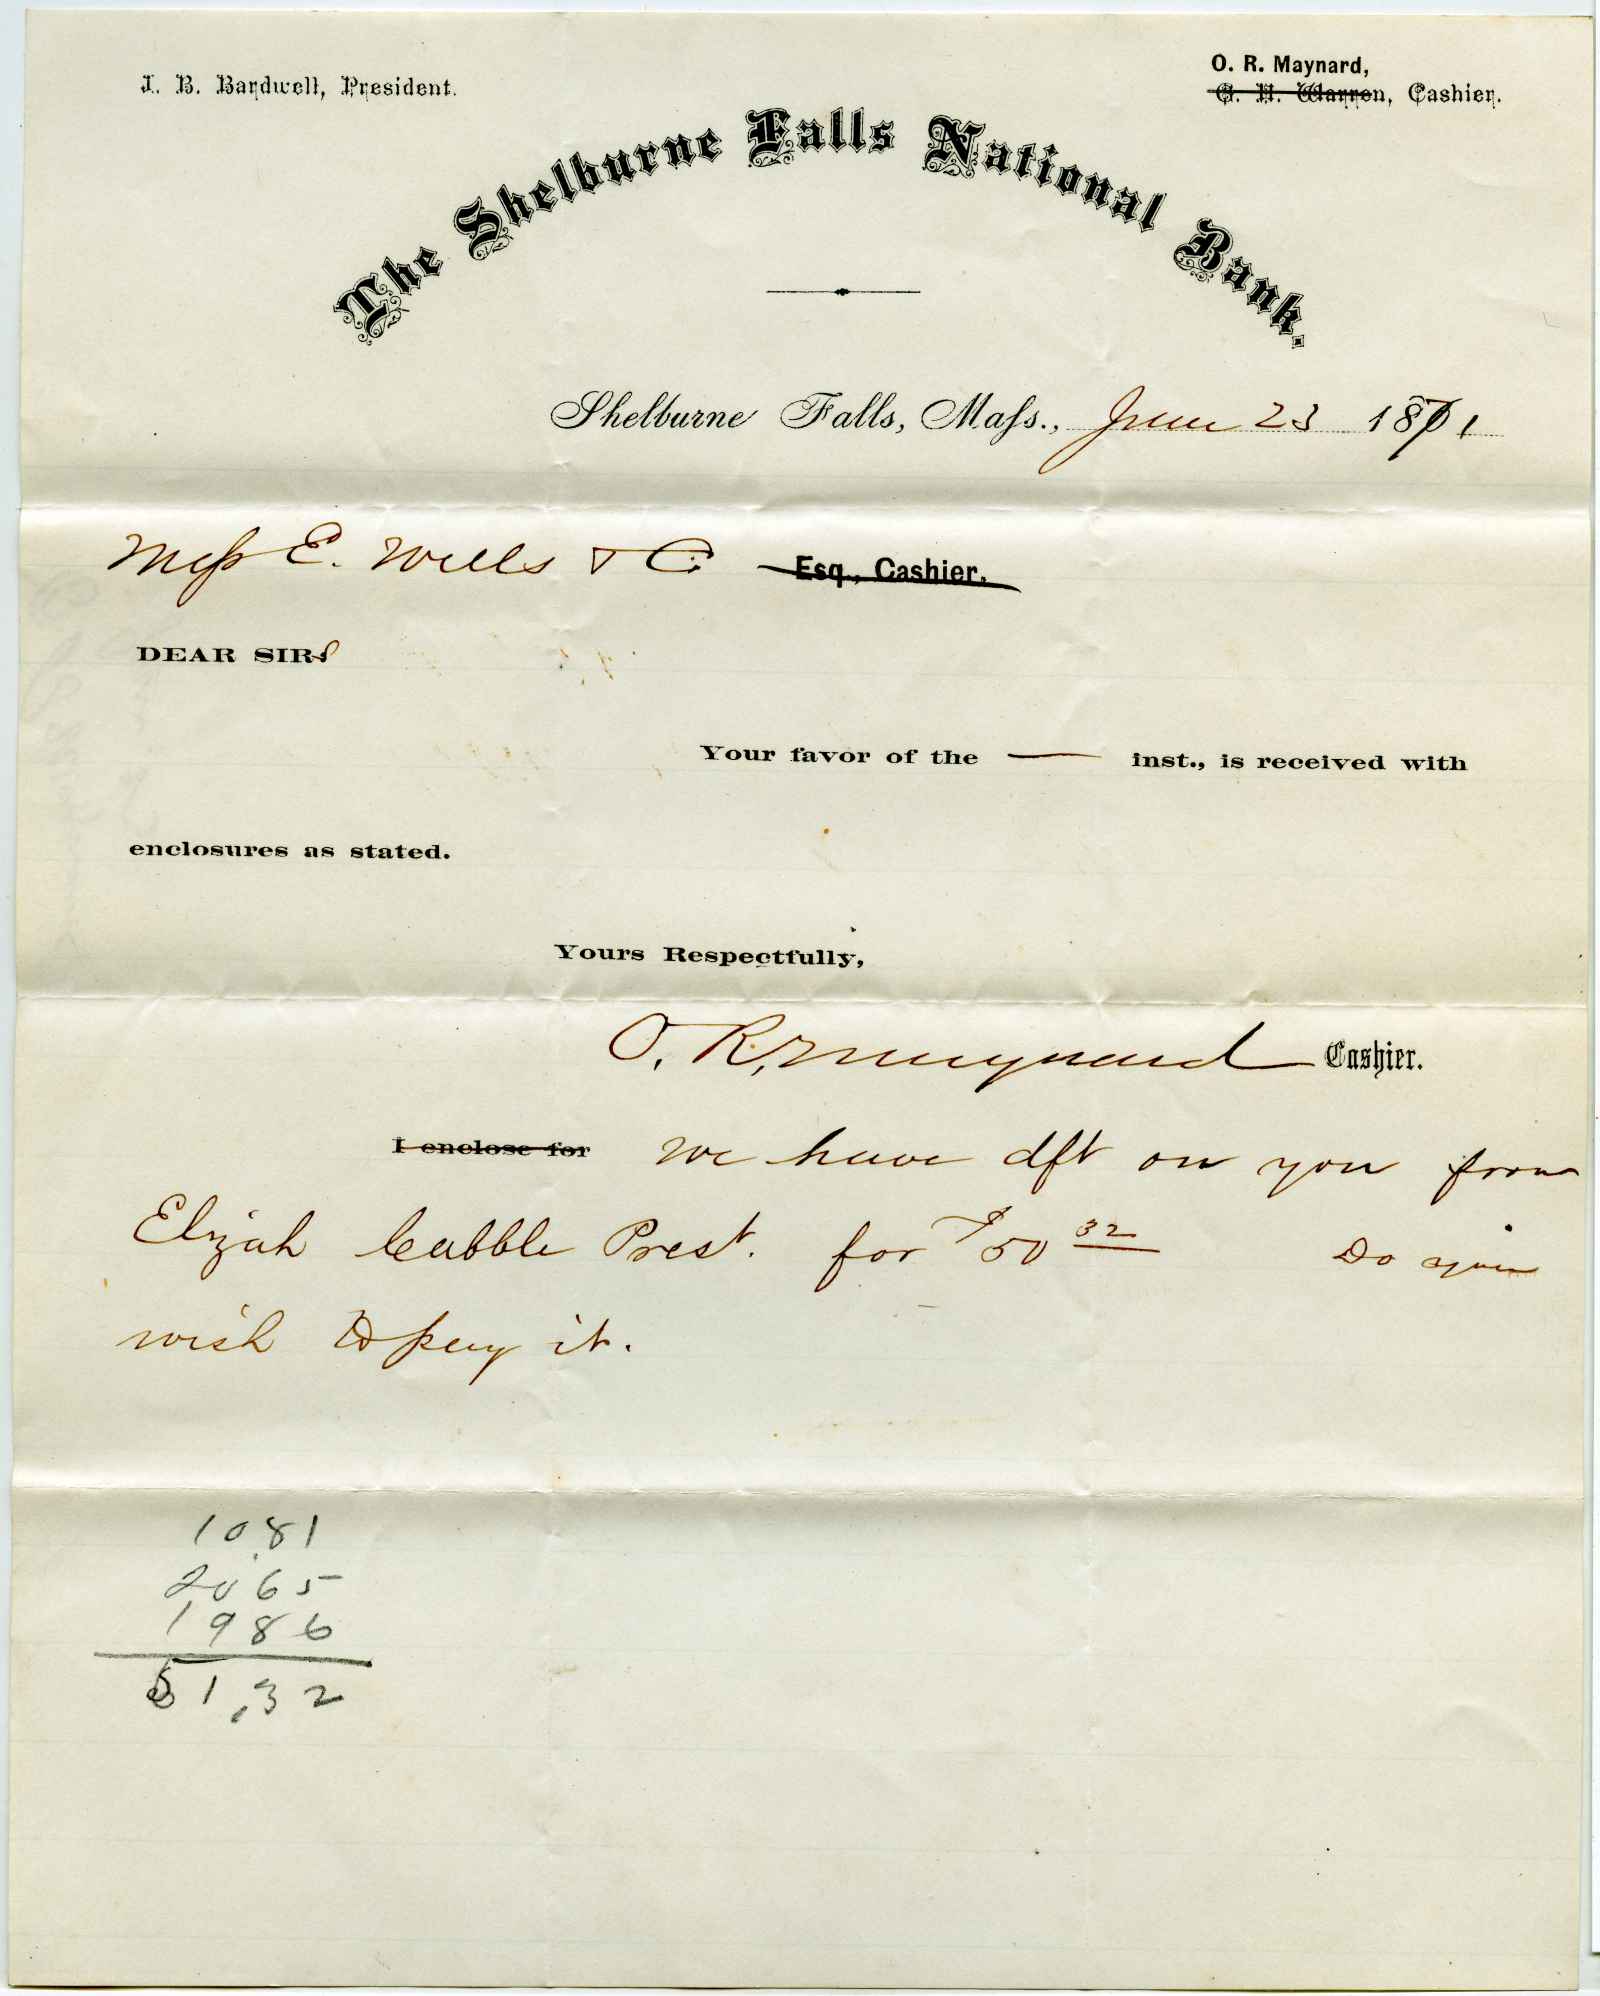 J. B. Bardwell, President.
O. R. Maynard,
G. H. Warren, Cashier.
The Shelburne Falls National Bank.
Shelburne Falls, Mass., June 23 1871
Mess E. Wells & C. Esq., Cashier.
DEAR SIRS
Your favor of the — inst., is received with
enclosures as stated.
Yours Respectfully,
O. R. Maynard Cashier.
I enclose for We have dft on you from
Elizah Cabble Prest. for $50 32 Do you
wish to pay it.
1081
2065
1986
51,32